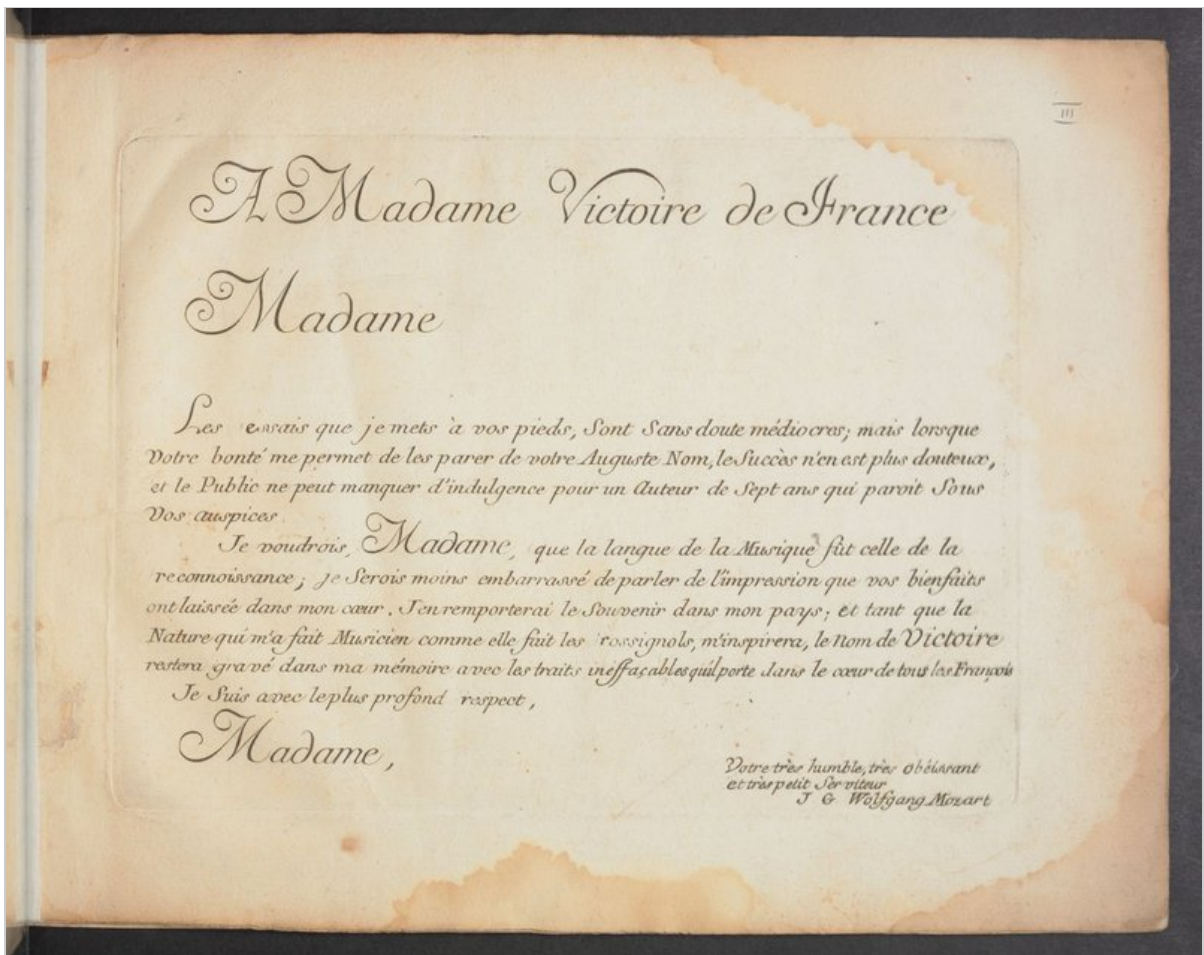 III
A Madame Victoire de France
Madame
Les essais que je mets à vos pieds, Sont Sans doute médiocres; mais lorsque
Votre bonté me permet de les parer de votre Auguste Nom, le Succès n'en est plus douteux,
et le Public ne peut manquer d'indulgence pour un Auteur de Sept ans qui paroit Sous
Vos auspices.
Je voudrois, Madame, que la langue de la Musique fût celle de la
reconnoissance; je Serois moins embarrassé de parler de l'impression que vos bienfaits
ont laissée dans mon cœur. J'en remporterai le Souvenir dans mon pays; et tant que la
Nature qui m'a fait Musicien comme elle fait les rossignols, m'inspirera, le Nom de Victoire
restera gravé dans ma mémoire avec les traits ineffaçables qu'il porte dans le cœur de tous les François
Je Suis avec le plus profond respect,
Madame,
Votre très humble, très obéissant
et très petit Serviteur
J G Wolfgang Mozart